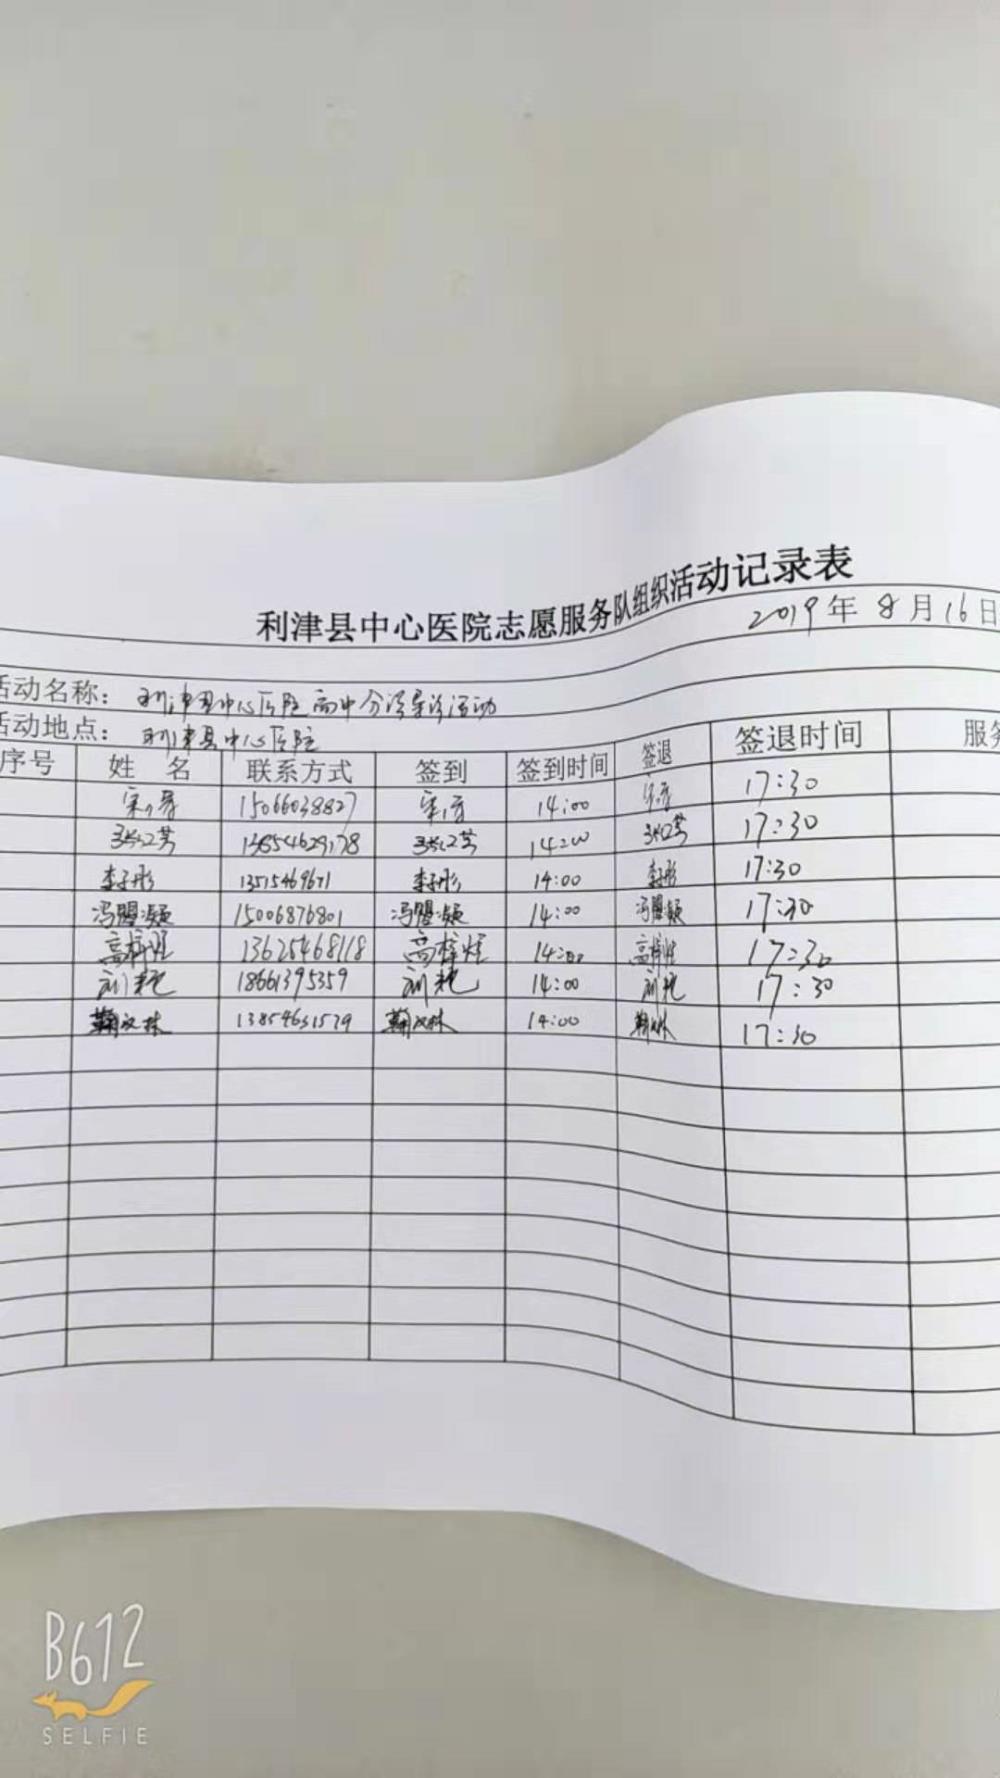 利津县中心医院志愿服务队组织活动记录表
2019年 8月16日
活动名称: 利津县中心医院高中分诊导诊活动
活动地点: 利津县中心医院
序号 姓 名 联系方式 签到 签到时间 签退 签退时间 服务
15066038827 14:00 17:30
13854629178 14:00 17:30
李子彤 13515469671 李子彤 14:00 李子彤 17:30
冯盟凝 15006876801 冯盟凝 14:00 冯盟凝 17:30
高梓煜 13625468118 高梓煜 14:00 高梓煜 17:30
18661395359 14:00 17:30
鞠文林 13854631579 鞠文林 14:00 鞠文林 17:30
B612
SELFIE